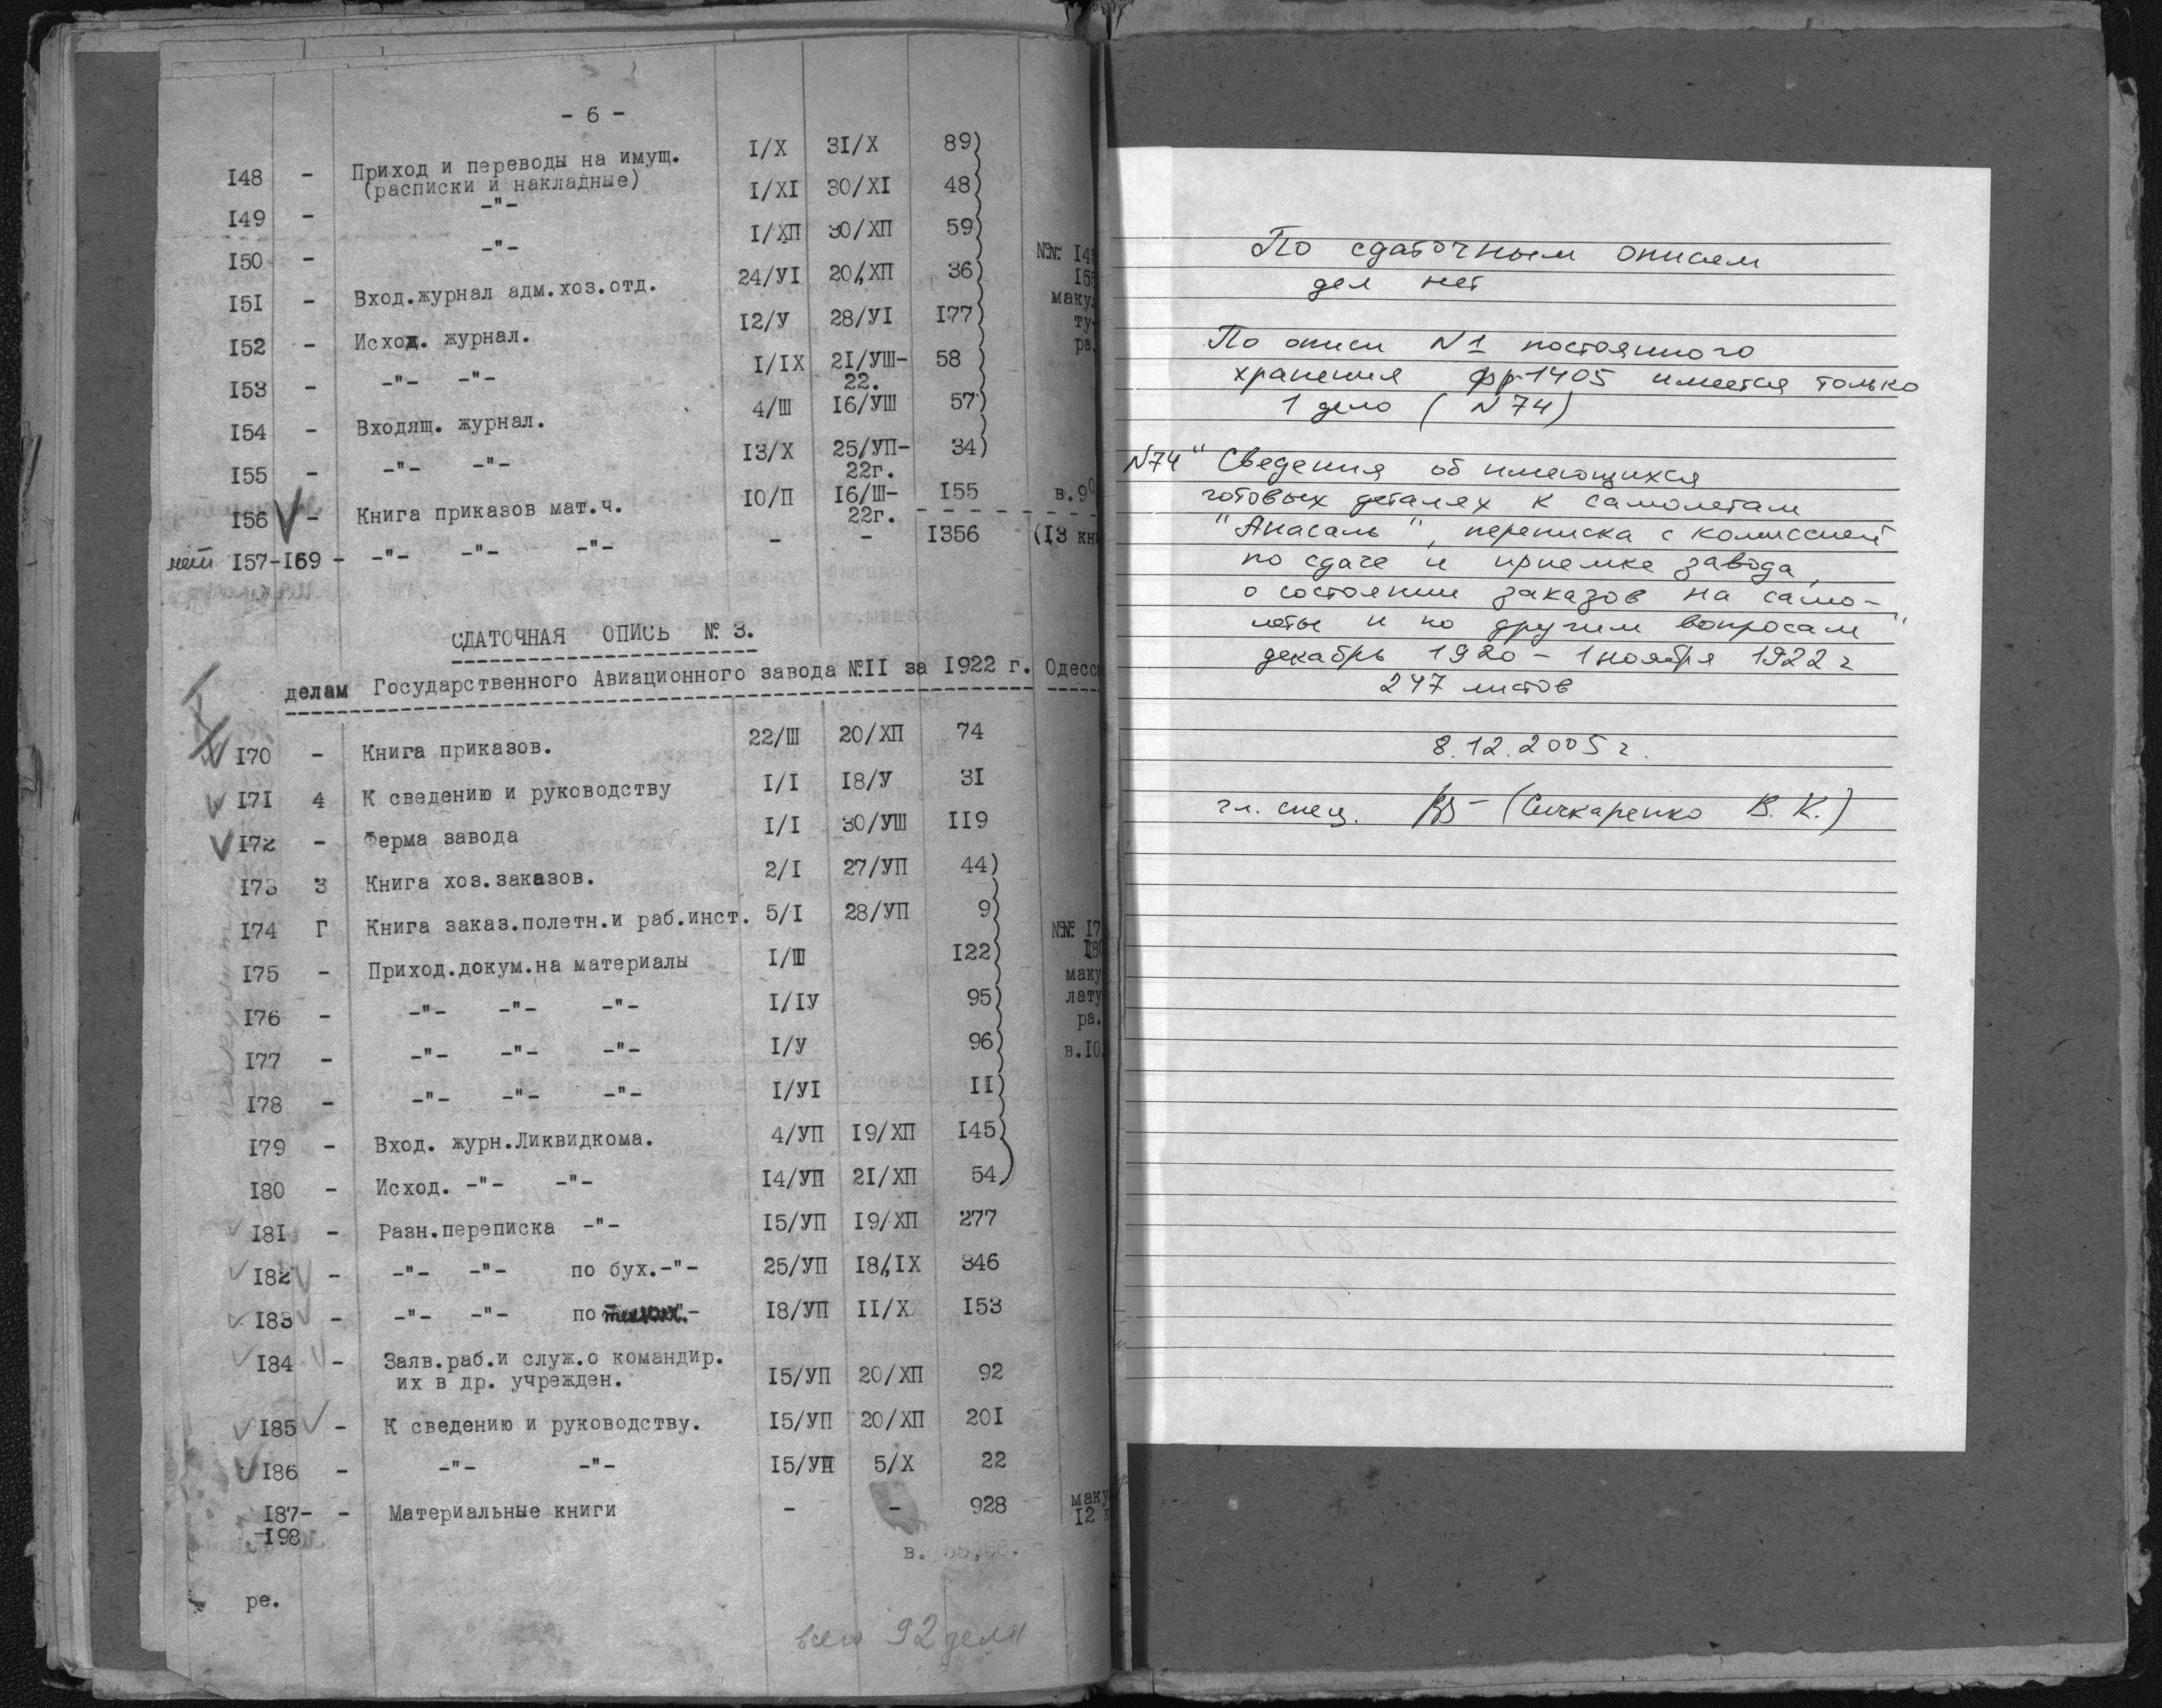 - 6 -
148 - Приход и переводы на имущ. I/X 3I/X 89)
(расписки и накладные)
149 - -"- I/XI 30/XI 48)
150 - -"- I/ХП 30/ХП 59)
№№ 14
I5I - Вход.журнал адм.хоз.отд. 24/УI 20/ХП 36)
маку
I52 - Исход. журнал. I2/У 28/УI I77)
ту-
ра.
I53 - -"- -"- I/IX 2I/УШ- 58 )
22.
I54 - Входящ. журнал. 4/Ш I6/УШ 57)
I55 - -"- -"- I3/X 25/УП- 34)
22г.
I56 - Книга приказов мат.ч. I0/П I6/Ш- I55 в.9
22г.
нет I57-I69 - -"- -"- -"- - - I356 (I3 кн
СДАТОЧНАЯ ОПИСЬ № 3.
делам Государственного Авиационного завода №II за I922 г. Одесс
I70 - Книга приказов. 22/Ш 20/ХП 74
I7I 4 К сведению и руководству I/I I8/У 3I
I72 - Ферма завода I/I 30/УШ II9
I73 3 Книга хоз.заказов. 2/I 27/УП 44)
I74 Г Книга заказ.полетн.и раб.инст. 5/I 28/УП 9)
№№ I7
I75 - Приход.докум.на материалы I/Ш I22)
I8
маку
I76 - -"- -"- -"- I/IУ 95)
лату
ра.
I77 - -"- -"- -"- I/У 96)
в.I0
I78 - -"- -"- -"- I/УI II)
I79 - Вход. журн.Ликвидкома. 4/УП I9/ХП I45)
I80 - Исход. -"- -"- I4/УП 2I/ХП 54)
I8I - Разн.переписка -"- I5/УП I9/ХП 277
I82 - -"- -"- по бух.-"- 25/УП I8/IX 346
I83 - -"- -"- по -"- I8/УП II/X I53
I84 - Заяв.раб.и служ.о командир.
их в др. учрежден. I5/УП 20/ХП 92
I85 - К сведению и руководству. I5/УП 20/ХП 20I
I86 - -"- -"- I5/УП 5/X 22
I87- - Материальные книги - - 928 маку
-I98 I2
в.
ре.
всего 92 дела
По сдаточным описям
дел нет
По описи №1 постоянного
хранения фр-1405 имеется только
1 дело (№74)
№74 "Сведения об имеющихся
готовых деталях к самолетам
"Анасаль", переписка с комиссией
по сдаче и приемке завода,
о состоянии заказов на само-
леты и по другим вопросам"
декабрь 1920 - 1 ноября 1922 г
247 листов
8.12.2005 г.
гл. спец. (Сичкаренко В. К.)